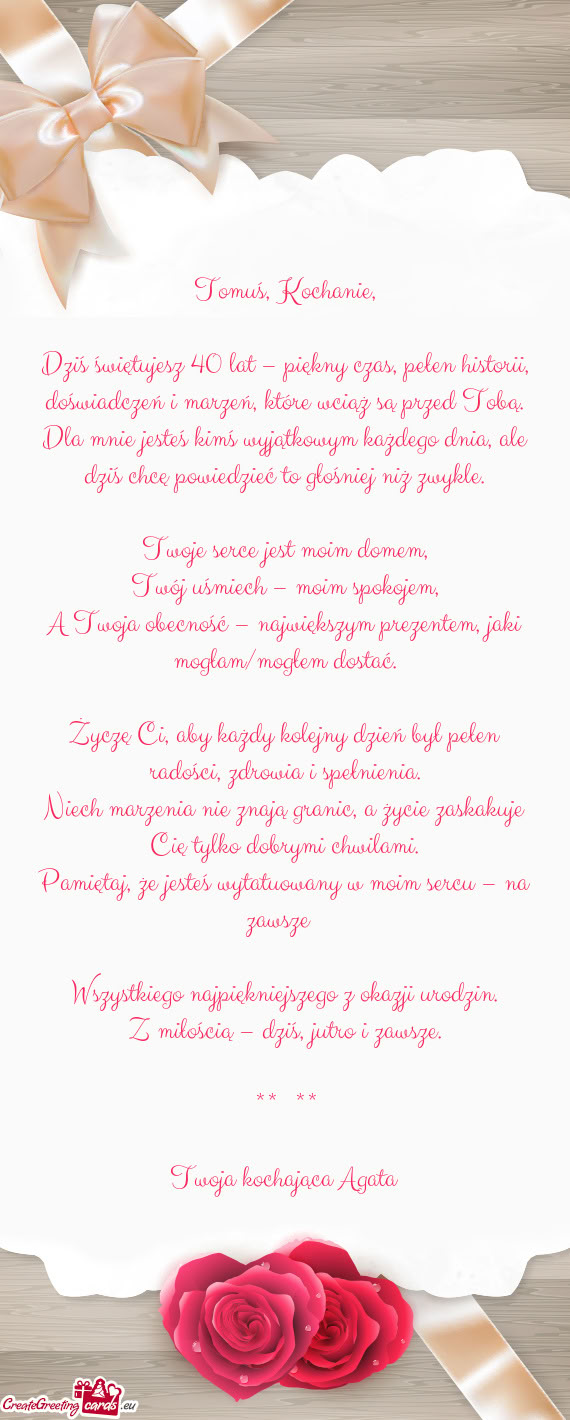 Tomuś, Kochanie,
Dziś świętujesz 40 lat – piękny czas, pełen historii,
doświadczeń i marzeń, które wciąż są przed Tobą.
Dla mnie jesteś kimś wyjątkowym każdego dnia, ale
dziś chcę powiedzieć to głośniej niż zwykle.
Twoje serce jest moim domem,
Twój uśmiech – moim spokojem,
A Twoja obecność – największym prezentem, jaki
mogłam/mogłem dostać.
Życzę Ci, aby każdy kolejny dzień był pełen
radości, zdrowia i spełnienia.
Niech marzenia nie znają granic, a życie zaskakuje
Cię tylko dobrymi chwilami.
Pamiętaj, że jesteś wytatuowany w moim sercu – na
zawsze
Wszystkiego najpiękniejszego z okazji urodzin.
Z miłością – dziś, jutro i zawsze.
** **
Twoja kochająca Agata
CreateGreeting cards .eu